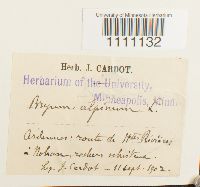 University of Minnesota Herbarium
1111132
Herb. J. CARDOT.
Herbarium of the University,
Minneapolis, Minn.
Bryum alpinum L.
Ardennes: route de Htes Rivières
à Nohan, rochers schisteux
Leg. J. Cardot - 11 sept. 1902.